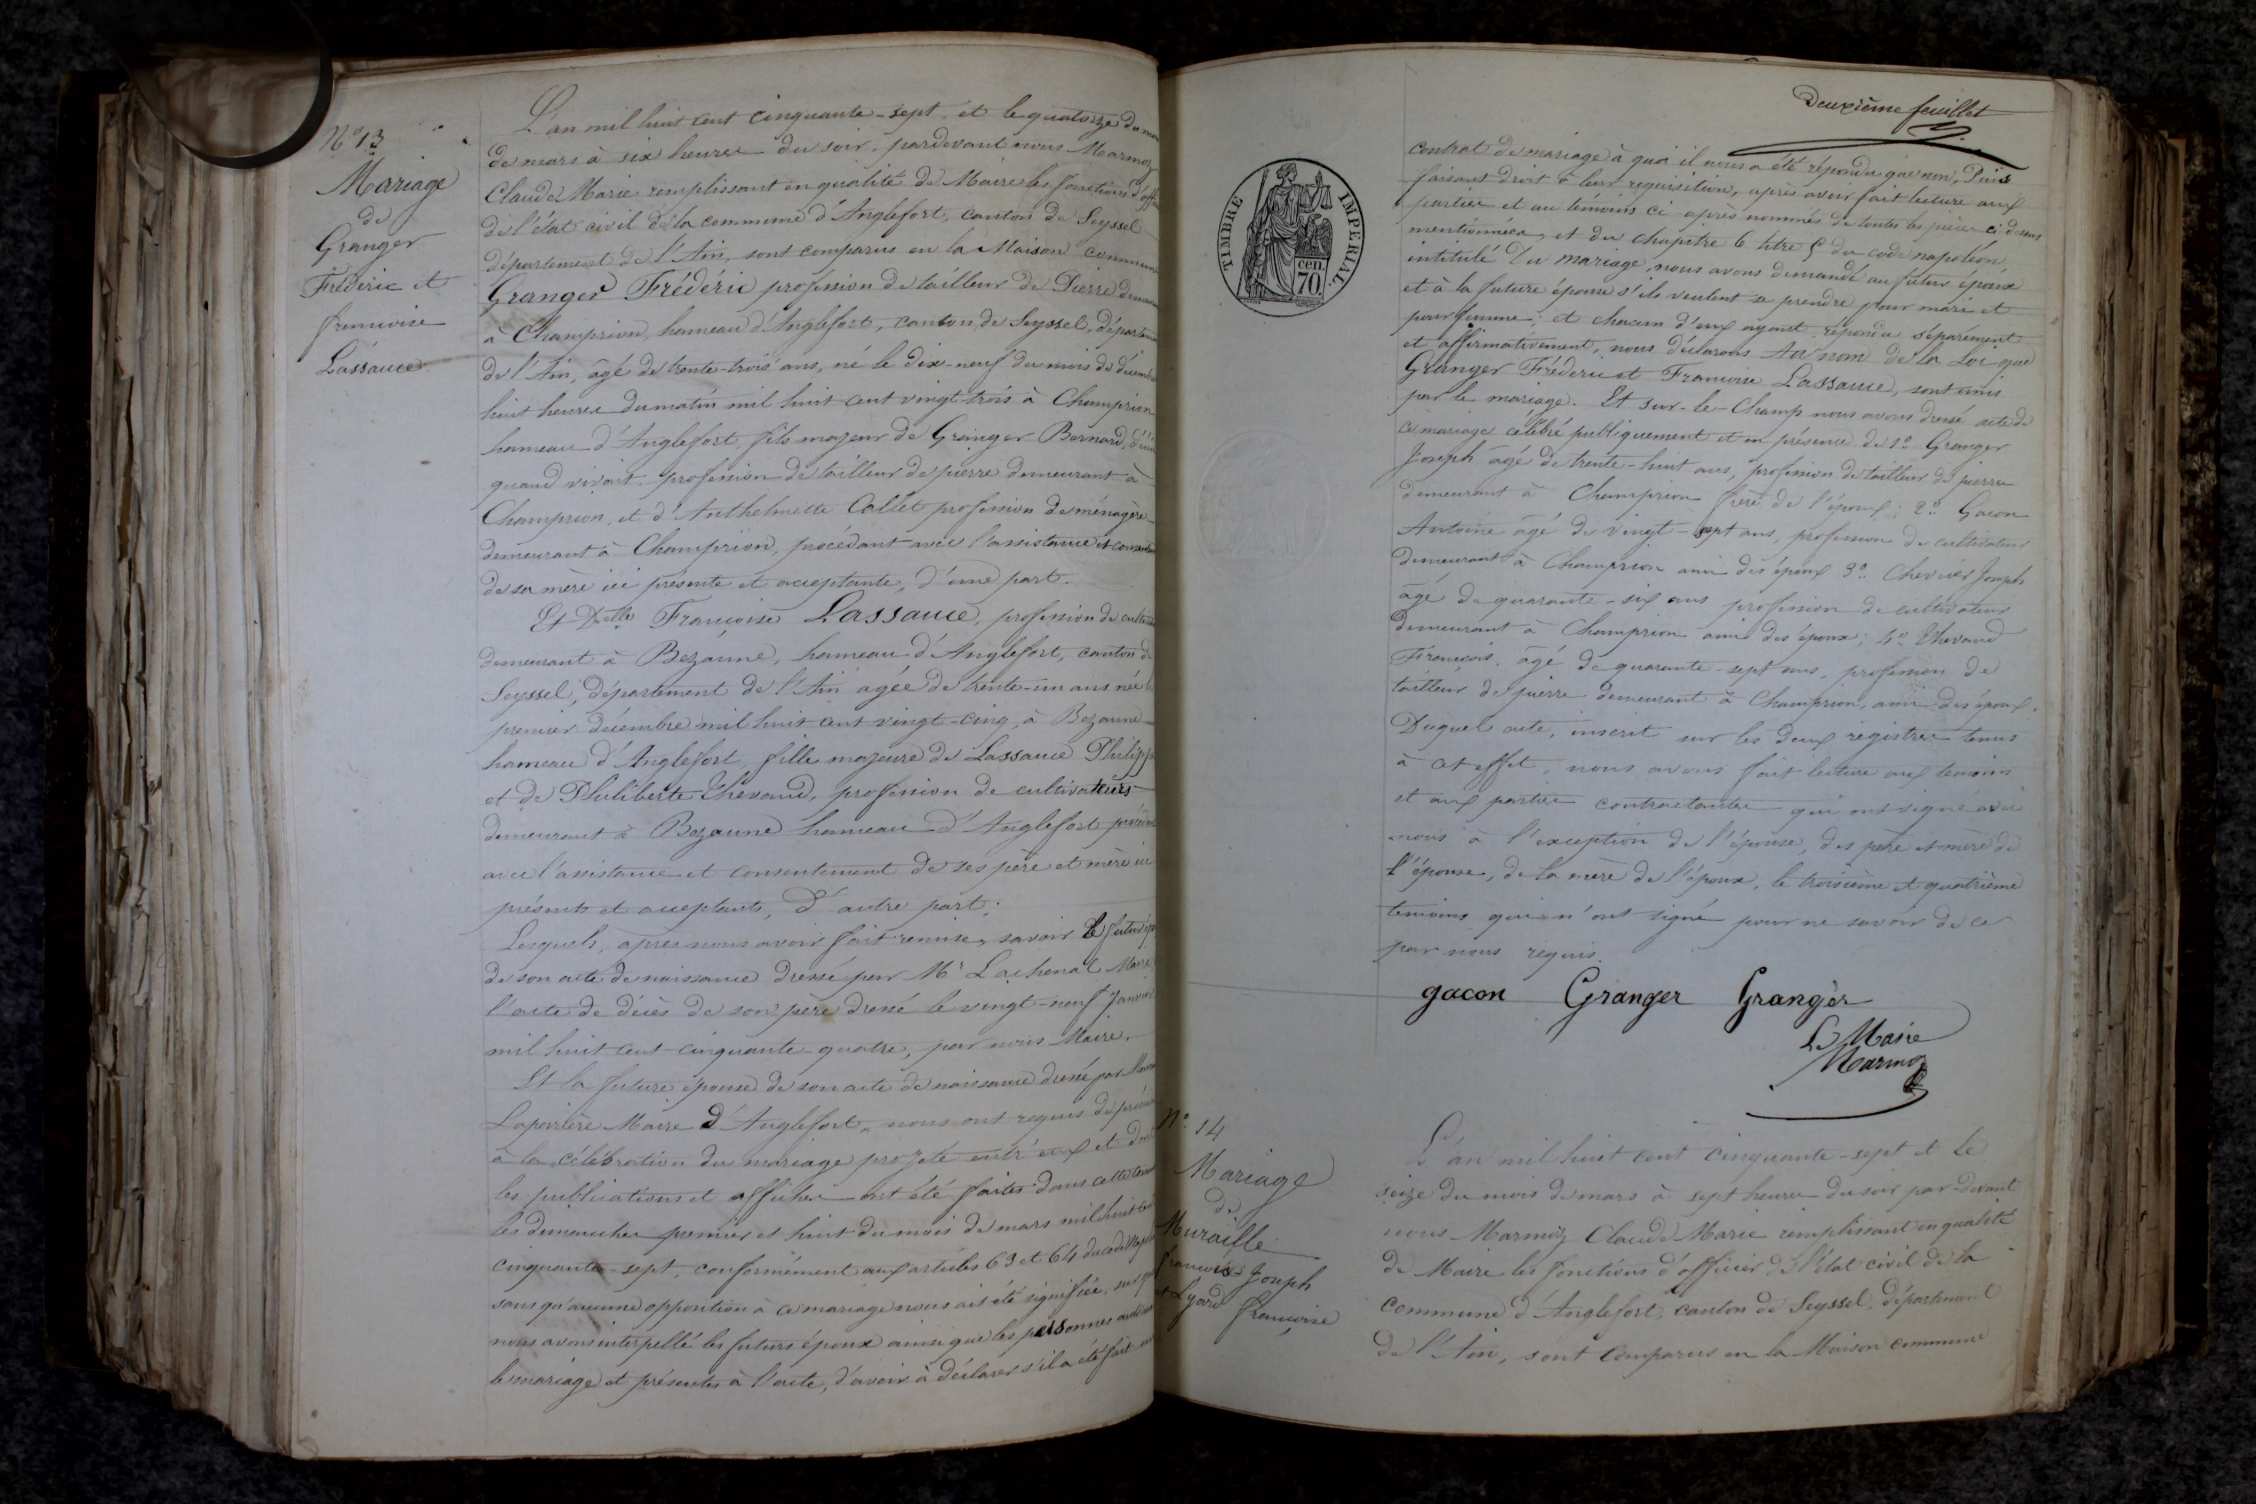 N° 13
Mariage
de
Granger
Frédéric et
françoise
Lassauce
L'an mil huit cent cinquante-sept et le quatorze du mois
de mars à six heures du soir, pardevant nous Marmoz
Claude Marie remplissant en qualité de Maire les fonctions d'off
de l'état civil de la commune d'Anglefort, canton de Seyssel
département de l'Ain, sont comparus en la Maison commune
Granger Frédéric profession de tailleur de Pierre demeu
à Champrion, hameau d'Anglefort, canton de Seyssel, départem
de l'Ain, âgé de trente-trois ans, né le dix-neuf du mois de décemb
huit heures du matin mil huit cent vingt-trois à Champrion
hameau d'Anglefort fils majeur de Granger Bernard,
quand vivait profession de tailleur de pierre demeurant à
Champrion, et d'Anthelmette Collet profession de ménagère
demeurant à Champrion, procédant avec l'assistance et consen
de sa mère ici présente et acceptante, d'une part.
Et Delle Françoise Lassauce, profession de cultiv
demeurant à Bezonne, hameau d'Anglefort, canton de
Seyssel, département de l'Ain agée de trente-un ans née le
premier décembre mil huit cent vingt-cinq, à Bezonne
hameau d'Anglefort, fille majeure de Lassauce Philippe
et de Philiberte Thevand, profession de cultivateurs
demeurant à Bezonne hameau d'Anglefort
avec l'assistance et consentement de ses père et mère ici
présents et acceptants, d'autre part;
Lesquels, après nous avoir fait remise, savoir le futur ép
de son acte de naissance dressé par Mr Lachenal Maire
l'acte de décès de son père dressé le vingt-neuf Janvier
mil huit cent cinquante-quatre, par nous Maire.
Et la future épouse de son acte de naissance dressé par
Maire d'Anglefort, nous ont requis de procéder
à la célébration du mariage projeté entr'eux et dont
les publications et affiches ont été faites dans cette
les dimanches premier et huit du mois de mars mil huit cent
cinquante-sept, conformément aux articles 63 et 64 du code Nap
sans qu'aucune opposition à ce mariage nous ait été signifiée, sur quoi
nous avons interpellé les futurs époux ainsi que les personnes
le mariage et présentes à l'acte, d'avoir à déclarer s'il a été fait un
Deuxième feuillet
TIMBRE IMPÉRIAL.
cen.
70
contrat de mariage à quoi il nous a été répondu que non, Puis
faisant droit à leur requisition, après avoir fait lecture aux
parties et au temoins ci après nommés de toutes les pièces ci dessus
mentionnées, et du chapitre 6 titre 5 du code napoléon,
intitulé Du mariage, nous avons demandé au futur époux
et à la future épouse s'ils veulent se prendre pour mari et
pour femme; et chacun d'eux ayant répondu séparément
et affirmativement, nous déclarons Au nom de la Loi que
Granger Frédéric et Françoise Lassauce, sont unis
par le mariage. Et sur-le-Champ nous avons dressé acte de
ce mariage célébré publiquement et en présence de 1° Granger
Joseph âgé de trente-huit ans, profession de tailleur de pierre
demeurant à Champrion frère de l'époux; 2° Gacon
Antoine âgé de vingt-sept ans, profession de cultivateur
demeurant à Champrion ami des époux 3° Chevrier Joseph
âgé de quarante-six ans profession de cultivateur
demeurant à Champrion ami des époux; 4° Thevand
François, âgé de quarante-sept ans, profession de
tailleur de pierre demeurant à Champrion, ami des époux.
Duquel acte, inscrit sur les deux registres tenus
à cet effet, nous avons fait lecture aux temoins
et aux parties contractantes qui ont signé avec
nous à l'exception de l'épouse, des père et mère de
l'épouse, de la mère de l'époux, le troisième et quatrième
temoins qui n'ont signé pour ne savoir de ce
par nous requis.
gacon Granger Granger
Le Maire
Marmoz
N° 14
Mariage
de
Muraille
françois Joseph
et Lyard
françoise
L'an mil huit cent cinquante-sept et le
seize du mois de mars à sept heures du soir par-devant
nous Marmoz Claude Marie remplissant en qualité
de Maire les fonctions d'officier de l'état civil de la
commune d'Anglefort, canton de Seyssel, département
de l'Ain, sont comparus en la Maison commune